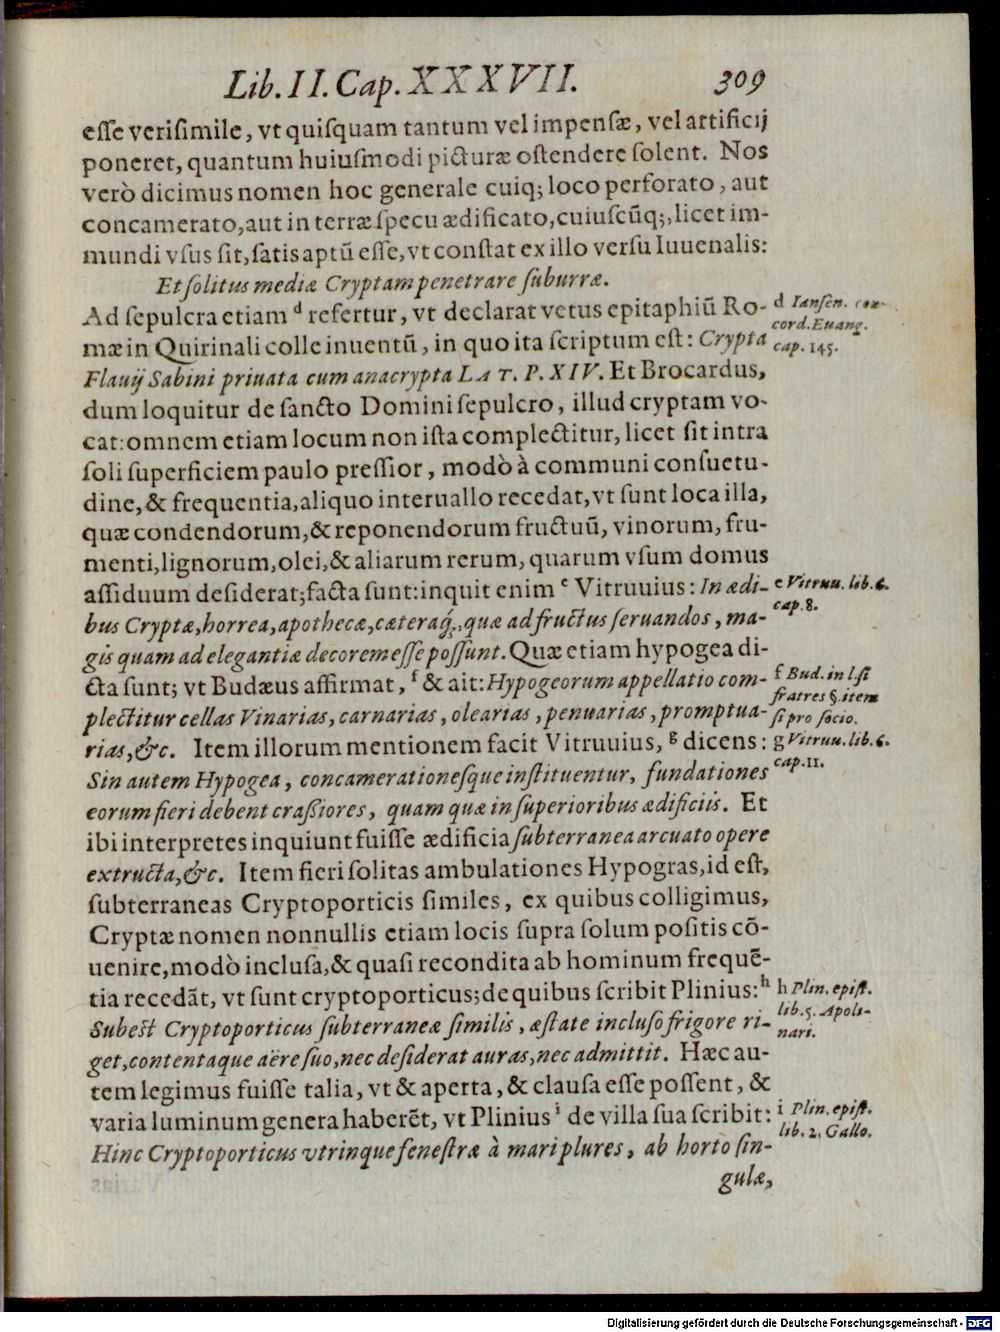 Lib. II. Cap. XXXVII. 309
esse verisimile, vt quisquam tantum vel impensæ, vel artificij
poneret, quantum huiusmodi picturæ ostendere solent. Nos
verò dicimus nomen hoc generale cuiq; loco perforato, aut
concamerato, aut in terræ specu ædificato, cuiuscũq;, licet im-
mundi vsus sit, satis aptũ esse, vt constat ex illo versu Iuuenalis:
Et solitus mediæ Cryptam penetrare suburræ.
Ad sepulcra etiam d refertur, vt declarat vetus epitaphiũ Ro-
mæ in Quirinali colle inuentũ, in quo ita scriptum est: Crypta
Flauij Sabini priuata cum anacrypta LAT. P. XIV. Et Brocardus,
dum loquitur de sancto Domini sepulcro, illud cryptam vo-
cat: omnem etiam locum non ista complectitur, licet sit intra
soli superficiem paulo pressior, modò à communi consuetu-
dine, & frequentia, aliquo interuallo recedat, vt sunt loca illa,
quæ condendorum, & reponendorum fructuũ, vinorum, fru-
menti, lignorum, olei, & aliarum rerum, quarum vsum domus
assiduum desiderat; facta sunt: inquit enim e Vitruuius: In ædi-
bus Cryptæ, horrea, apothecæ, cæteraq́;, quæ ad fructus seruandos, ma-
gis quam ad elegantiæ decorem esse possunt. Quæ etiam hypogea di-
cta sunt; vt Budæus affirmat, f & ait: Hypogeorum appellatio com-
plectitur cellas Vinarias, carnarias, olearias, penuarias, promptua-
rias, &c. Item illorum mentionem facit Vitruuius, g dicens:
Sin autem Hypogea, concamerationesque instituentur, fundationes
eorum fieri debent crassiores, quam quæ in superioribus ædificiis. Et
ibi interpretes inquiunt fuisse ædificia subterranea arcuato opere
extructa, &c. Item fieri solitas ambulationes Hypogras, id est,
subterraneas Cryptoporticis similes, ex quibus colligimus,
Cryptæ nomen nonnullis etiam locis supra solum positis cõ-
uenire, modò inclusa, & quasi recondita ab hominum frequẽ-
tia recedãt, vt sunt cryptoporticus; de quibus scribit Plinius: h
Subest Cryptoporticus subterraneæ similis, æstate incluso frigore ri-
get, contentaque aëre suo, nec desiderat auras, nec admittit. Hæc au-
tem legimus fuisse talia, vt & aperta, & clausa esse possent, &
varia luminum genera haberẽt, vt Plinius i de villa sua scribit:
Hinc Cryptoporticus vtrinque fenestræ à mari plures, ab horto sin-
gulæ,
d Iansen. con-
cord. Euang.
cap. 145.
e Vitruu. lib. 6.
cap. 8.
f Bud. in l. si
fratres §. item
si pro socio.
g Vitruu. lib. 6.
cap. 11.
h Plin. epist.
lib. 5. Apoli-
nari.
i Plin. epist.
lib. 2. Gallo.
Digitalisierung gefördert durch die Deutsche Forschungsgemeinschaft - DFG